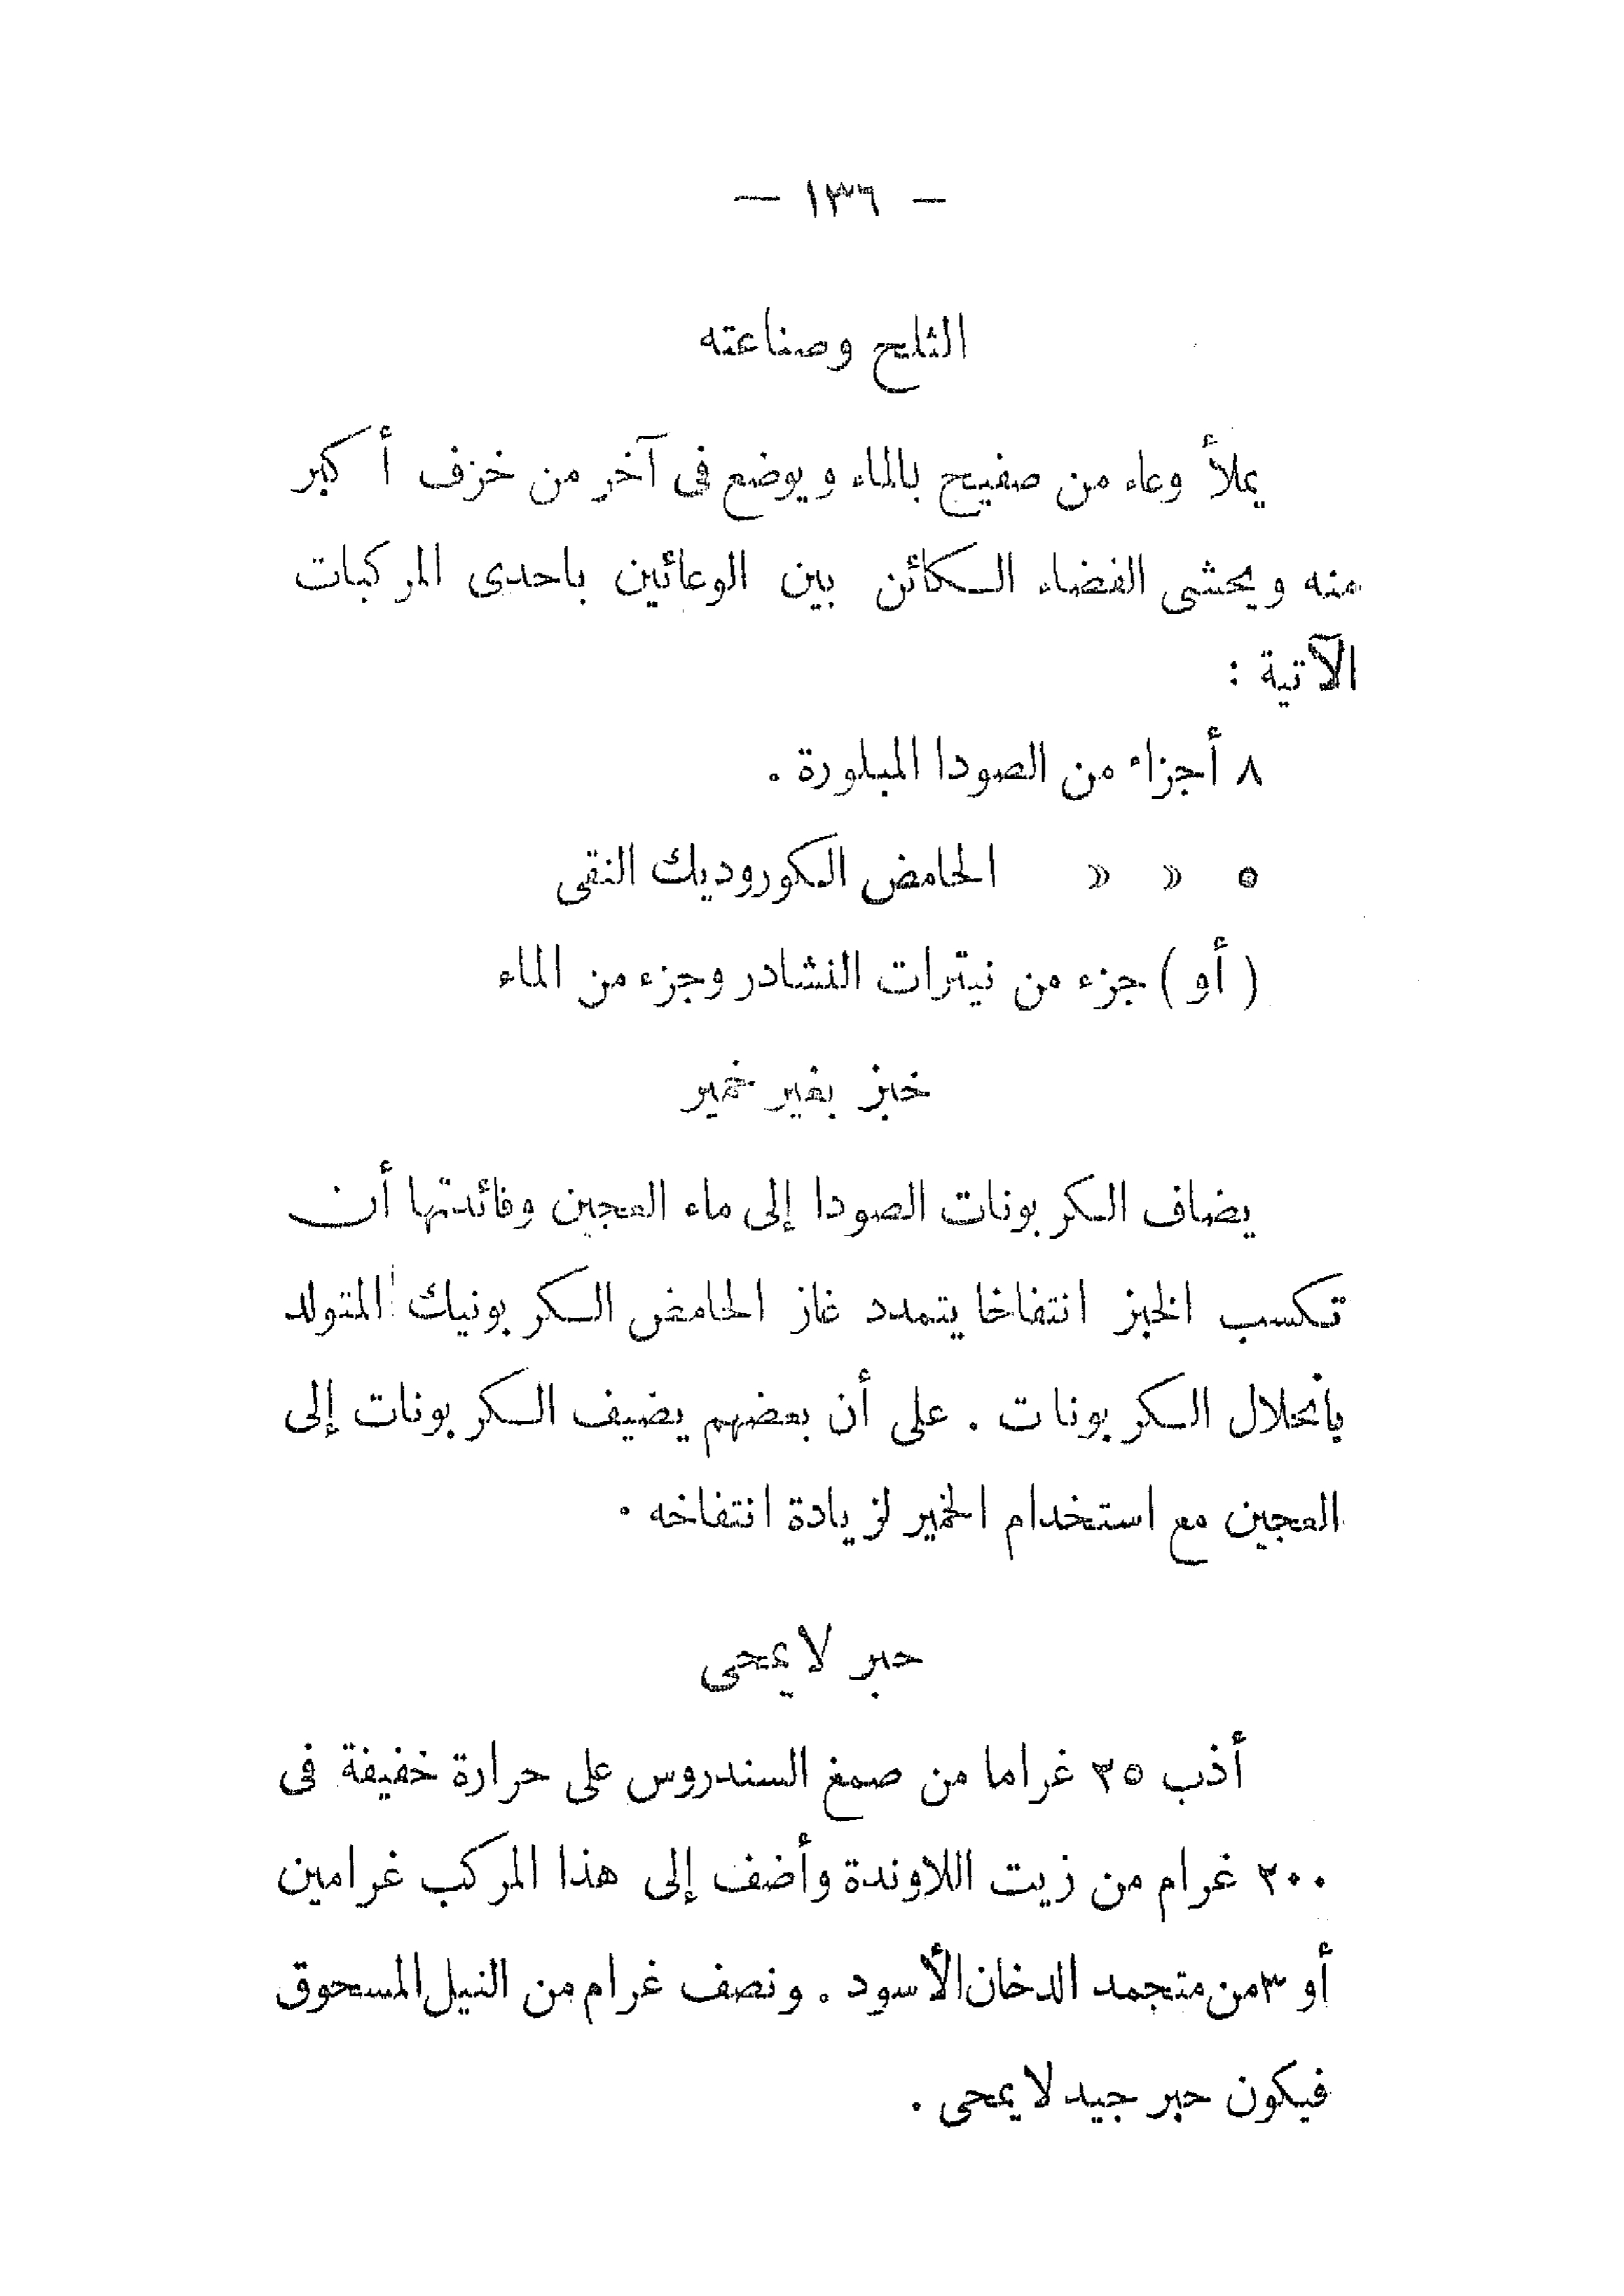 — ١٣٦ —
الثلج وصناعته
يملأ وعاء من صفيح بالماء ويوضع فى آخر من خزف أكبر
منه ويحشى الفضاء الكائن بين الوعائين باحدى المركبات
الآتية :
٨ أجزاء من الصودا المبلورة .
٥ » » الحامض الكوروديك النقى
( أو ) جزء من نيترات النشادر وجزء من الماء
خبز بغير خمير
يضاف الكربونات الصودا إلى ماء العجين وفائدتها أن
تكسب الخبز انتفاخا يتمدد غاز الحامض الكربونيك المتولد
بأنحلال الكربونات . على أن بعضهم يضيف الكربونات إلى
العجين مع استخدام الخمير لزيادة انتفاخه .
حبر لا يمحى
أذب ٢٥ غراما من صمغ السندروس على حرارة خفيفة فى
٢٠٠ غرام من زيت اللاوندة وأضف إلى هذا المركب غرامين
أو ٣ من متجمد الدخان الأسود . ونصف غرام من النيل المسحوق
فيكون حبر جيد لا يمحى .